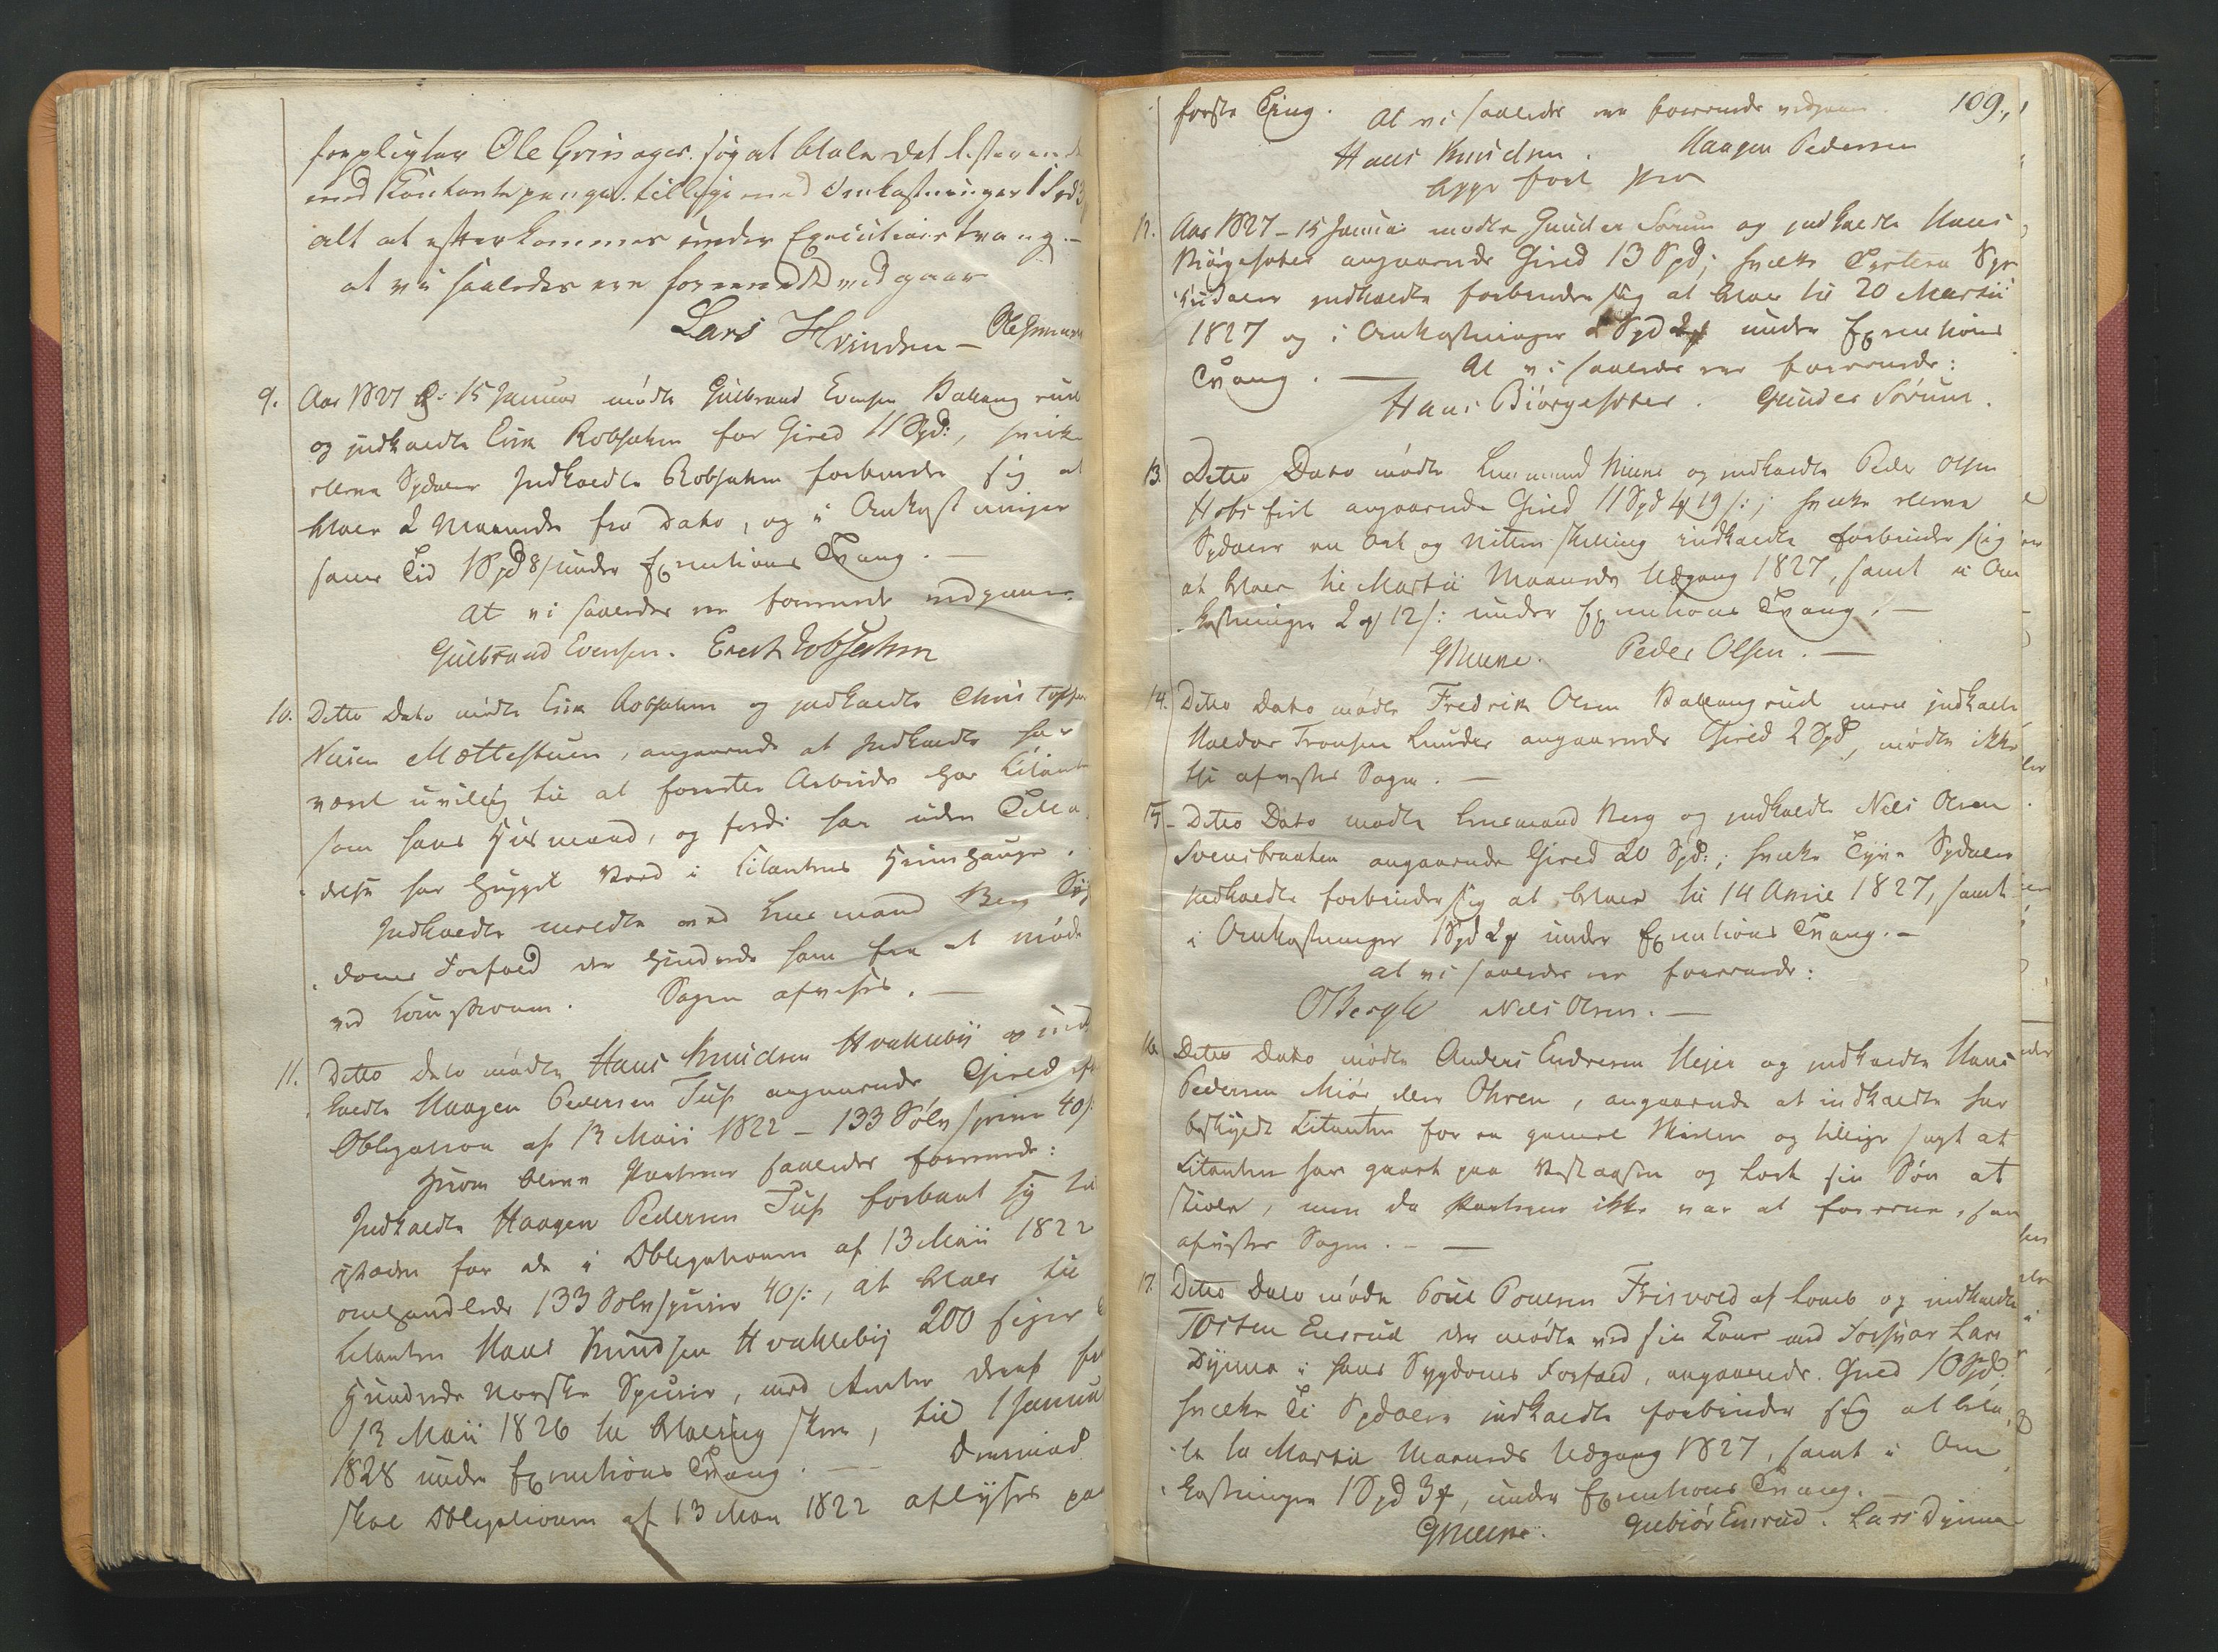 forpligter Ole Grinager sig at betale det resterende
med Contante penge tilligemed Omkostninger 1 Spd 3
alt at efterkommes under Executions tvang.-
at vi saaledes ere foreenede vedgaar
Lars Hvinden - Ole Grinager
9. Aar 1827 d: 15 Januar mødte Gulbrand Evensen Ballangrud
og indkaldte Erik Robsahm for Gield 11 Spd:, hvilke
elleve Spdaler Indkaldte Robsahm forbinder sig at
betale 2 Maaneder fra Dato, og i Omkostninger
samme Tid 1 Spd 8 s under Executions Tvang.-
At vi saaledes ere foreenede vedgaaes
Gulbrand Evensen. Erich Robsahm
10. Ditto Dato mødte Erik Robsahm og indkaldte Christopher
Nilsen Mættestuen, angaaende at Indkaldte har
været uvillig til at forrette Arbeide hos Citanten
som hans Huusmand, og fordi han uden Tilla-
delse har hugget Veed i Citantens Hiemhauge.
Indkaldte meldte ved Lensmand Berg Syg-
doms Forfald der hindrede ham fra at møde
ved Commissionen. Sagen afvises.-
11. Ditto Dato mødte Hans Knudsen Hvalebÿ og ind-
kaldte Haagen Pedersen Tuf angaaende Gield efter
Obligation af 13 Maii 1822 - 133 Sølv specier 40 s:
Hvorom bleve Parterne saaledes foreenede:
Indkaldte Haagen Pedersen Tuf forbandt sig til
istæden for de i Obligationen af 13 Maii 1822
omhandlede 133 Sølvspecier 40 s:, at betale til
Citanten Hans Knudsen Hvalebÿ 200 siger
Hundrede norske Specier, med Renter deraf fra
13 Maii 1826 til Betaling skeer, til 1 Januar
1828 under Executions Tvang. - Derimod
skal Obligationen af 13 Maii 1822 aflyses paa
109.
første Ting. At vi saaledes ere foreenede vedgaaes
Hans Knudsen. Haagen Pedersen
12. Aar 1827 - 15 Januar mødte Gunder Sørum og indkaldte Hans
Biørgeseter angaaende Gield 13 Spd; hvilke Tretten Spe-
ciedaler indkaldte forbinder sig at betale til 20 Martii
1827 og i Omkostninger Spd under Executions
Tvang. - At vi saaledes ere foreenede:
Hans Biörgeseter. Gunder Sörum.
13. Ditto Dato mødte Lensmand Mune og indkaldte Peder Olsen
angaaende Gield 11 Spd 19 s:; hvilke elleve
Spdaler en Ort og nitten Skilling indkaldte forbinder sig
at betale til Martii Maaneds Udgang 1827, samt i Om-
kostninger 2 12 s: under Executions Tvang.-
GMune. Peder Olsen.-
14. Ditto Dato mødte Fredrik Olsen Ballangrud men indkaldte
Haldor Tronsen Lunder angaaende Gield 2 Spd, mødte ikke
thi afvistes Sagen.-
15. Ditto Dato mødte Lensmand Berg og indkaldte Niels Olsen
Svensbraaten angaaende Gield 20 Spd:; hvilke Tyve Spdaler
indkaldte forbinder sig at betale til 14 April 1827, samt
i Omkostninger 1 Spd 2 under Executions Tvang.-
at vi saaledes ere foreenede:
OBergh Niels Olsen.-
16. Ditto Dato mødte Anders Endresen Heier og indkaldte Hans
Pedersen eller Ohren, angaaende at indkaldte har
beskyldt Citanten for en gammel og tillige sagt at
Citanten har gaaet paa og lært sin Søn at
stiæle, men da Parterne ikke var at foreene, saa
afvistes Sagen.-
17. Ditto Dato mødte Poul Poulsen Frisvold af Lomb og indkaldte
Torsten Enerud der mødte ved sin Kone med Forsvar Lars
Dynna i hans Sygdoms Forfald, angaaende Gield 10 Spd,
hvilke Ti Spdaler indkaldte forbinder sig at beta-
le til Martii Maaneds Udgang 1827, samt i Om-
kostninger 1 Spd 3, under Executions Tvang.
GMune. Gubiör Enerud. Lars Dynna